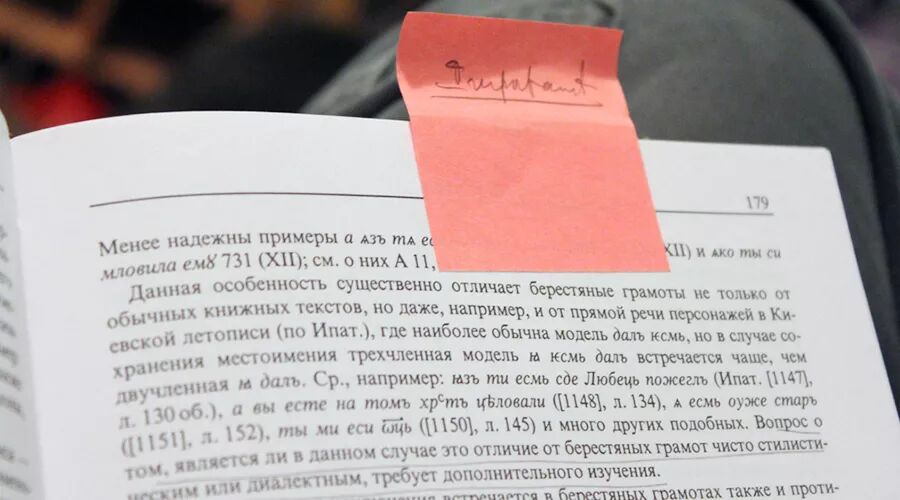 179
Менее надежны примеры а ѧзъ тѧ XII) и ѧко ты си
мловила емꙋ 731 (XII); см. о них А 11,
Данная особенность существенно отличает берестяные грамоты не только от
обычных книжных текстов, но даже, например, и от прямой речи персонажей в Ки-
евской летописи (по Ипат.), где наиболее обычна модель далъ ѥсмь, но в случае со-
хранения местоимения трехчленная модель ꙗ ѥсмь далъ встречается чаще, чем
двучленная ꙗ далъ. Ср., например: ꙗзъ ти есмь сде Любець пожеглъ (Ипат. [1147],
л. 130 об.), а вы есте на томъ хрⷭ҇тъ цѣловали ([1148], л. 134), ѧ есмь оуже старъ
([1151], л. 152), ты ми еси ѿць ([1150], л. 145) и много других подобных. Вопрос о
том, является ли в данном случае это отличие от берестяных грамот чисто стилисти-
ческим или диалектным, требует дополнительного изучения.
встречается в берестяных грамотах также и проти-